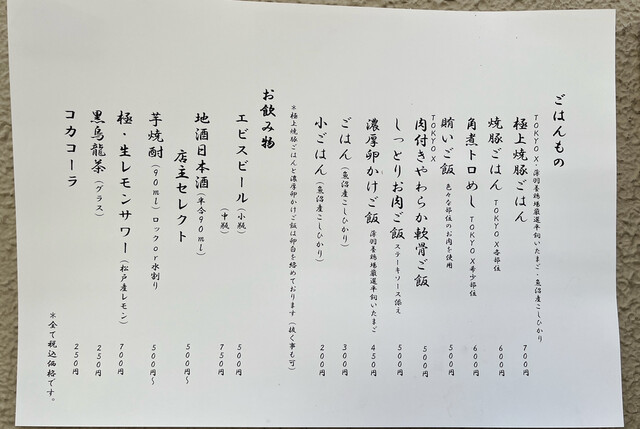 ごはんもの
TOKYO X・薄羽養鶏場厳選平飼いたまご・魚沼産こしひかり
極上焼豚ごはん 700円
焼豚ごはん TOKYO X各部位 600円
角煮トロめし TOKYO X希少部位 600円
賄いご飯 色々な部位のお肉を使用 500円
TOKYO X
肉付きやわらか軟骨ご飯 500円
しっとりお肉ご飯 ステーキソース添え 500円
濃厚卵かけご飯 薄羽養鶏場厳選平飼いたまご 450円
ごはん（魚沼産こしひかり） 300円
小ごはん（魚沼産こしひかり） 200円
＊極上焼豚ごはんと濃厚卵かけご飯は卵白を絡めております（抜く事も可）
お飲み物
エビスビール（小瓶） 500円
（中瓶） 750円
地酒日本酒（半合90ml）
店主セレクト 500円〜
芋焼酎（90ml）ロックor水割り 500円〜
極・生レモンサワー（松戸産レモン） 700円
黒烏龍茶（グラス） 250円
コカコーラ 250円
＊全て税込価格です。